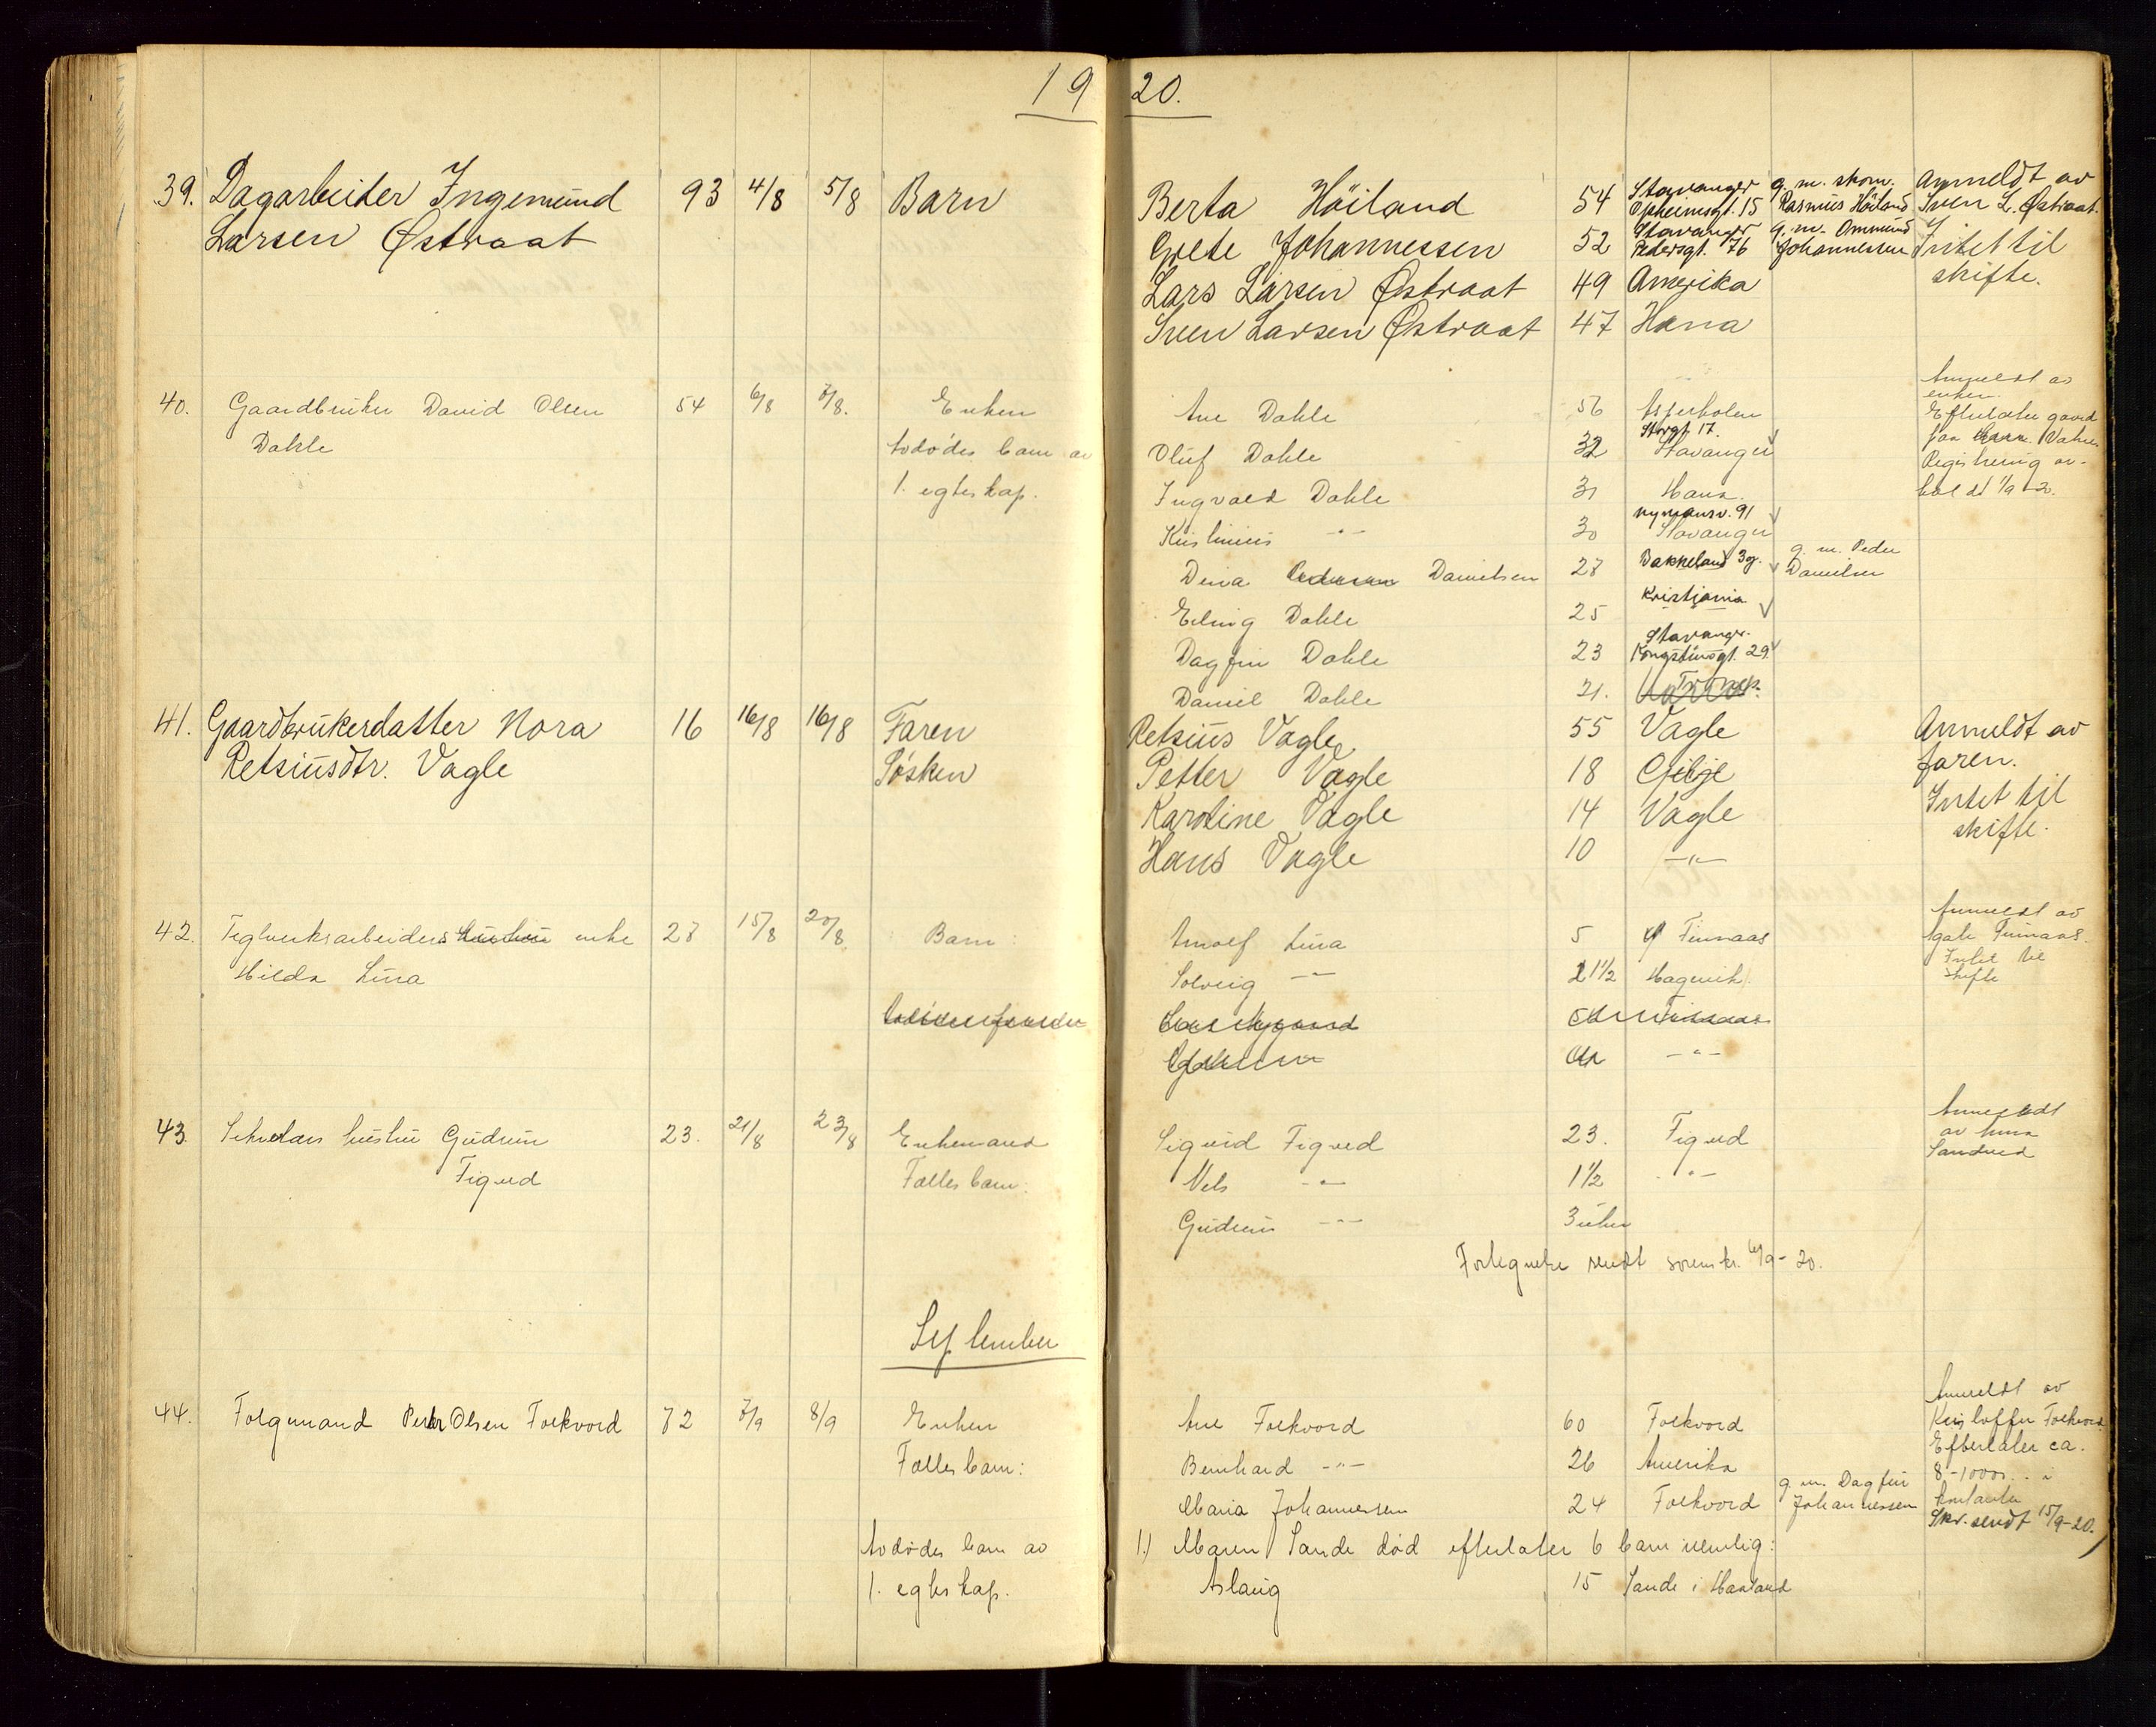 19 20.
39. Dagarbeider Ingemund 93 4/8 5/8 Barn
Larsen Østraat
Berta Höiland 54 Stavanger Opheimsgt. 15 g. m. skom. Rasmus Höiland
Grete Johannessen 52 Stavanger Pedersgt. 76 g. m. Ommund Johannessen
Lars Larsen Østraat 49 Amerika
Sven Larsen Østraat 47 Hana
Anmeldt av
Sven L. Østraat.
Intet til
skifte.
40. Gaardbruker David Olsen 54 6/8 7/8. Enken
Dahle
Avdødes barn av
1. egteskap.
Ane Dahle 56
Oluf Dahle 32 Storgt. 17. Stavanger
Ingvald Dahle 31 Hana.
Kristinius -"- 30 Nymansv. 91 Stavanger
Dina Pedersen Danielsen 27 Bakkeland 39. g. m. Peder Danielsen
Erling Dahle 25 Kristiania
Dagfin Dahle 23 Stavanger. Kongstinsgt. 29
Daniel Dahle 21.
Anmeldt av
enken.
Efterlater gaard
paa
Registrering av-
holdt 1/9-20.
41. Gaardbrukerdatter Nora 16 16/8 16/8 Faren
Retsiusdtr. Vagle Søsken
Retsius Vagle 55 Vagle
Petter Vagle 18 Gilje
Karoline Vagle 14 Vagle
Hans Vagle 10 -"-
Anmeldt av
faren.
Intet til
skifte.
42. Teglverksarbeiders hustru enke 27 15/8 20/8 Barn:
Hilda Lura
Arnolf Lura 5 Finnaas
Solveig -"- 1 1/2 Hagevik.
-"-
Anmeldt av
Finnaas.
Intet til
skifte
43. hustru Gudrun 23. 21/8 23/8 Enkemand
Figved Fælles barn:
Sigurd Figved 23. Figved
Nels -"- 1 1/2 -"-
Gudrun -"- 3 uker
Anmeldt
av
Sandved
Fortegnelse sendt sorenskr. 6/9-20.
September
44. Folgemand Peder Olsen Folkvord 72 7/9 8/9 Enken
Fælles barn:
Ane Folkvord 60 Folkvord
Bernhard -"- 26 Amerika
Maria Johannessen 24 Folkvord g. m. Dagfin Johannessen
Anmeldt av
Kristoffer Folkvord
Efterlater ca.
8-1000.. i
kontanter
Skr. sendt 15/9-20.
Avdødes barn av
1. egteskap.
1.) Maren Sande død efterlater 6 barn nemlig:
Aslaug 15 Sande i Haaland